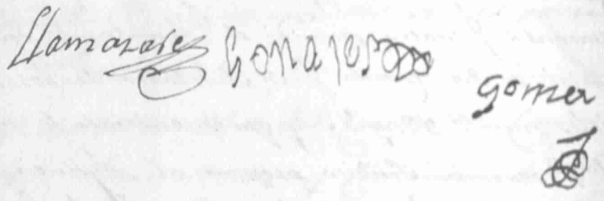 Llamazares Gonzalez
Gomez